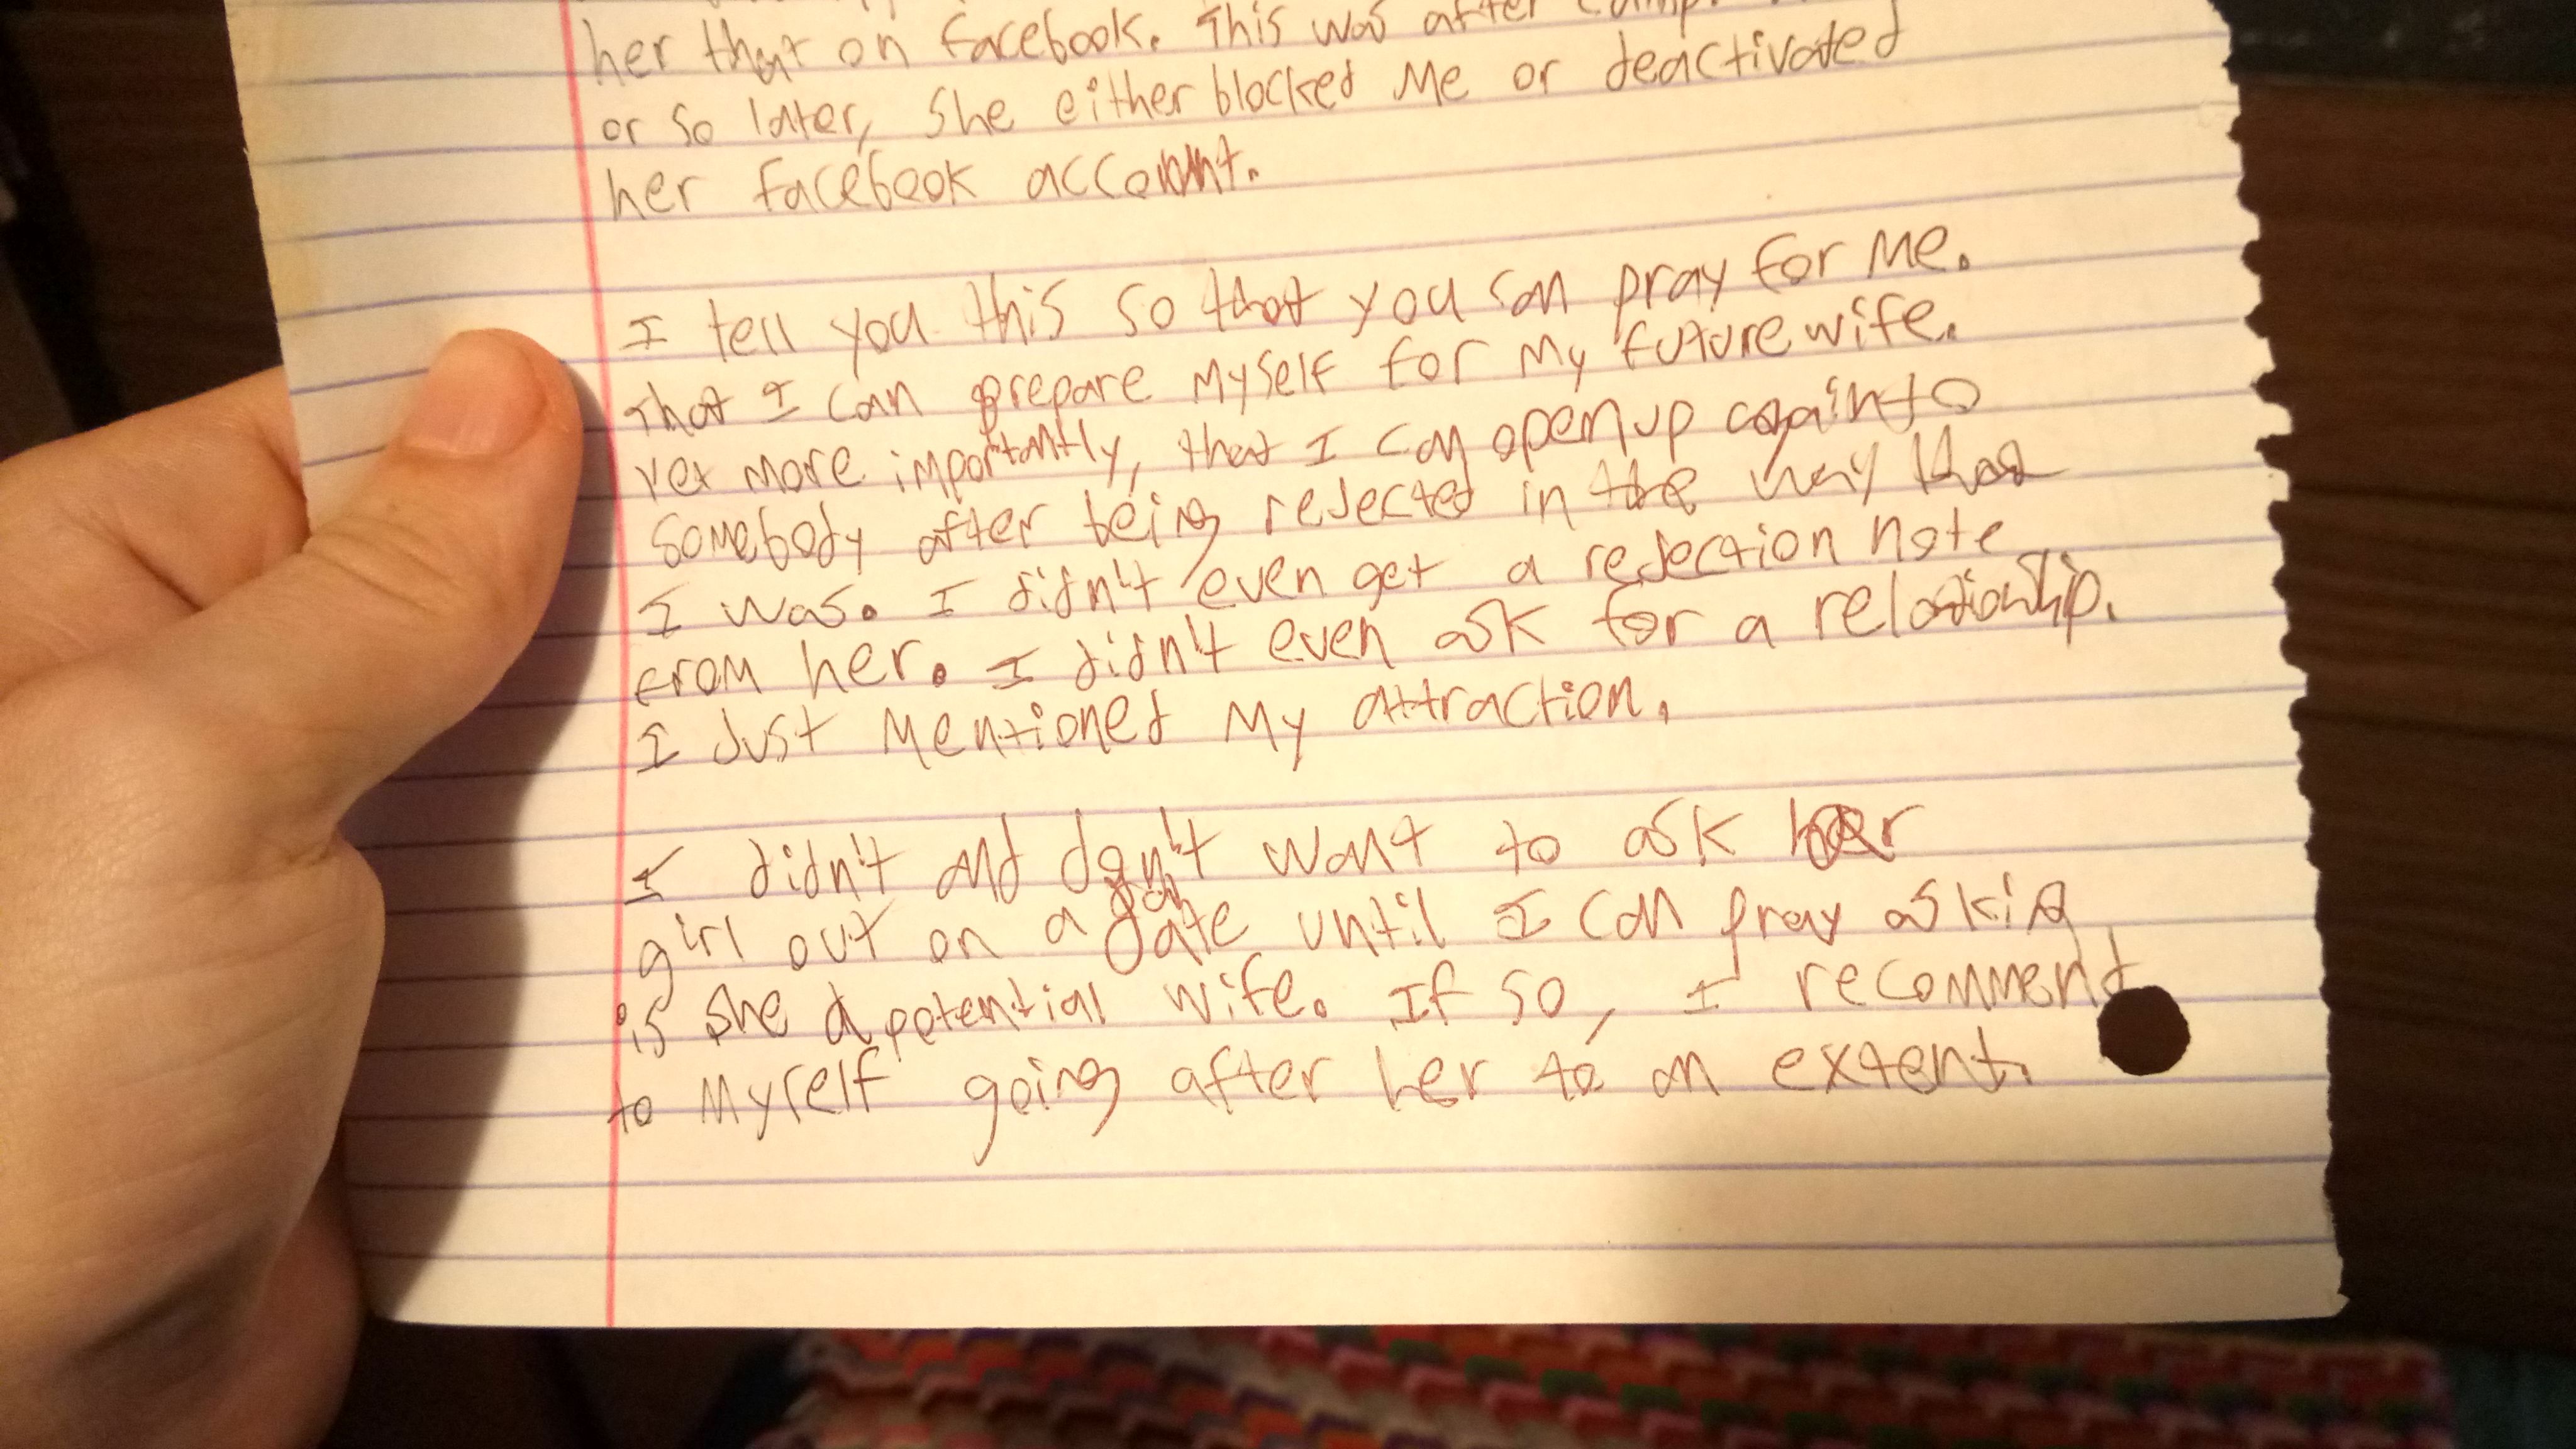 her that on facebook. This was after camp.
or so later, she either blocked me or deactivated
her facebook account.
I tell you this so that you can pray for me.
That I can prepare myself for my future wife.
Yet more importantly, that I can open up again to
somebody after being rejected in the way that
I was. I didn't even get a rejection note
from her. I didn't even ask for a relationship.
I Just mentioned my attraction.
I didn't and don't want to ask her
girl out on a date until I can pray asking
is she a potential wife. If so, I recommend
to myself going after her to an extent.